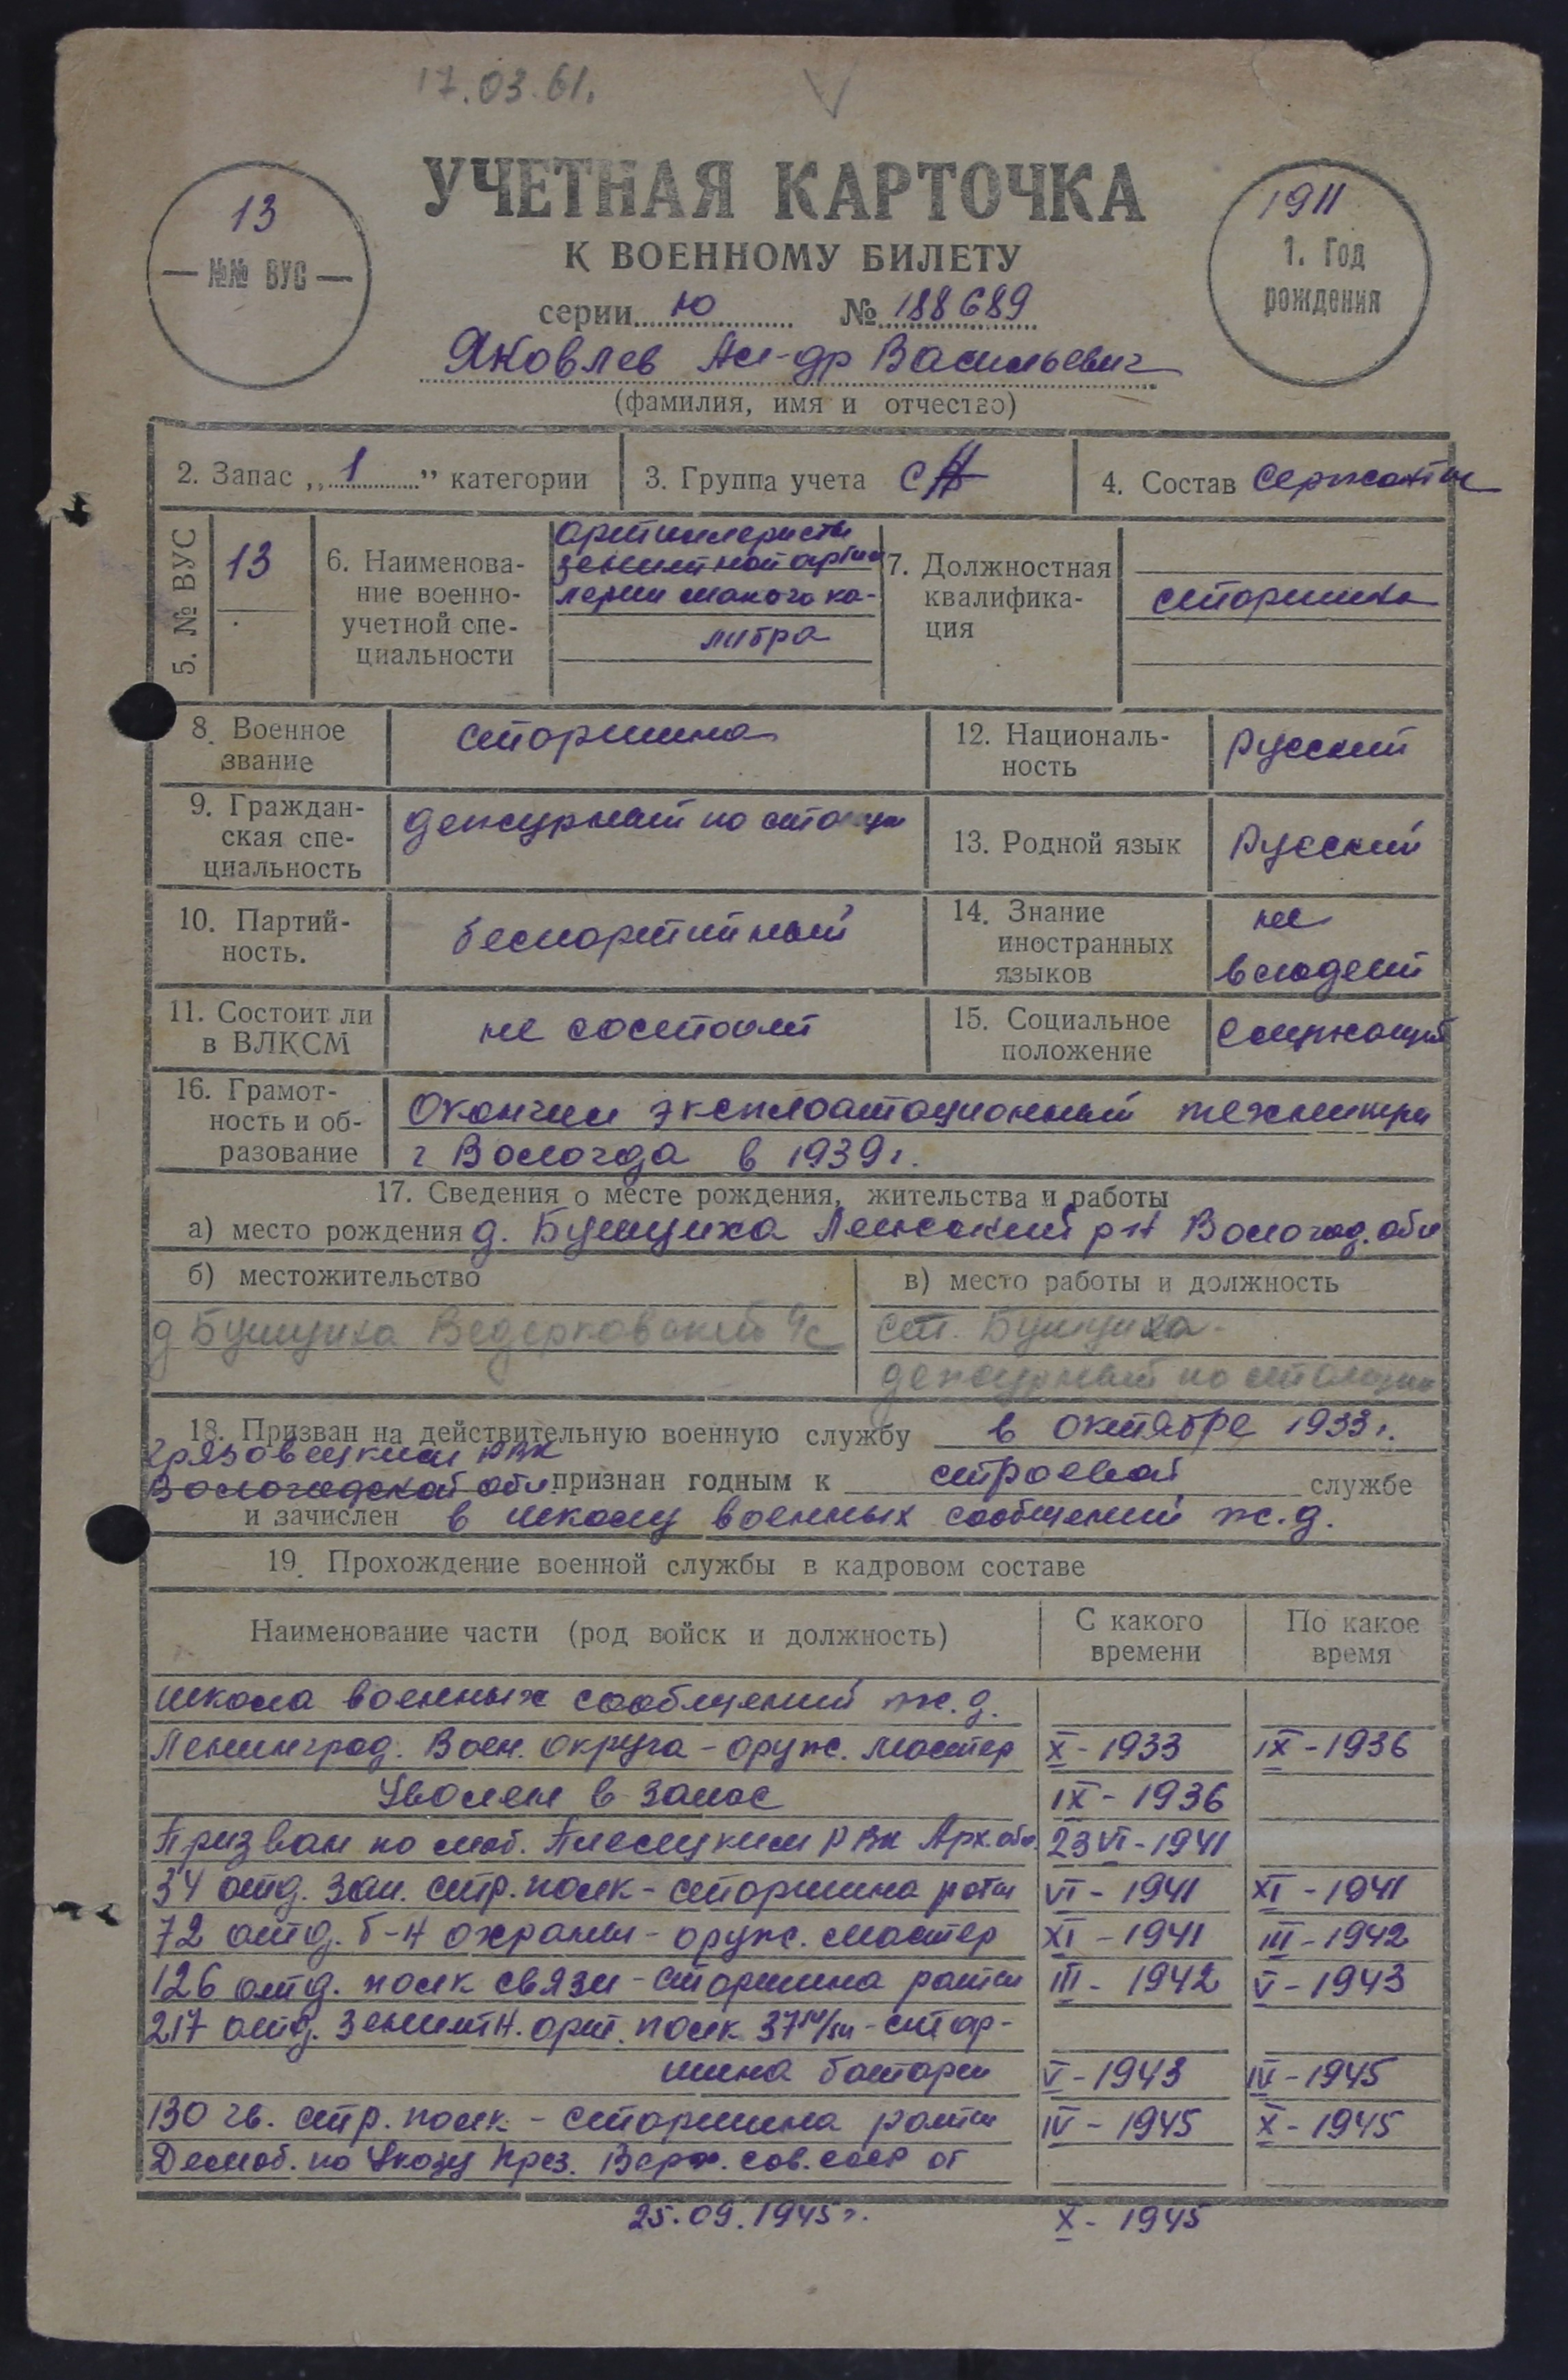 17.03.61.
УЧЕТНАЯ КАРТОЧКА
К ВОЕННОМУ БИЛЕТУ
серии Ю № 188689
13
№№ ВУС
1911
1. Год
рождения
Яковлев Ал-др Васильевич
(фамилия, имя и отчество)
2. Запас „1” категории
3. Группа учета СА
4. Состав Сержанты
5. № ВУС
13
6. Наименова-
ние военно-
учетной спе-
циальности
артиллеристы
зенитной артил
лерии малого ка-
либра
7. Должностная
квалифика-
ция
старшина
8. Военное
звание
старшина
12. Националь-
ность
Русский
9. Граждан-
ская спе-
циальность
дежурный по станции
13. Родной язык
Русский
10. Партий-
ность.
беспартийный
14. Знание
иностранных
языков
не
владеет
11. Состоит ли
в ВЛКСМ
не состоит
15. Социальное
положение
Служащий
16. Грамот-
ность и об-
разование
Окончил эксплоатационный техникум
г Вологда в 1939г.
17. Сведения о месте рождения, жительства и работы
а) место рождения д. Бушуиха р-н Вологод. обл
б) местожительство
в) место работы и должность
д Бушуиха с/с
ст. Бушуиха.
дежурный по станции
18. Призван на действительную военную службу в октябре 1933г.
Грязовецким РВК
Вологодской обл. признан годным к строевой службе
и зачислен в школу военных сообщений ж.д.
19. Прохождение военной службы в кадровом составе
Наименование части (род войск и должность)
С какого
времени
По какое
время
школа военных сообщений ж.д.
Ленинград. Воен. округа - оруж. мастер X - 1933 IX - 1936
Уволен в запас IX - 1936
Призван по моб. Плесецким РВК Арх. обл. 23 VI - 1941
34 отд. зап. стр. полк - старшина роты VI - 1941 XI - 1941
72 отд. б-н охраны - оруж. мастер XI - 1941 III - 1942
126 отд. полк связи - старшина роты III - 1942 V - 1943
217 отд. зенитн. арт. полк 37 м/м - стар-
шина батареи V - 1943 IV - 1945
130 гв. стр. полк - старшина роты IV - 1945 X - 1945
Демоб. по Указу През. Верх. сов. ссср от
25.09.1945г. X - 1945